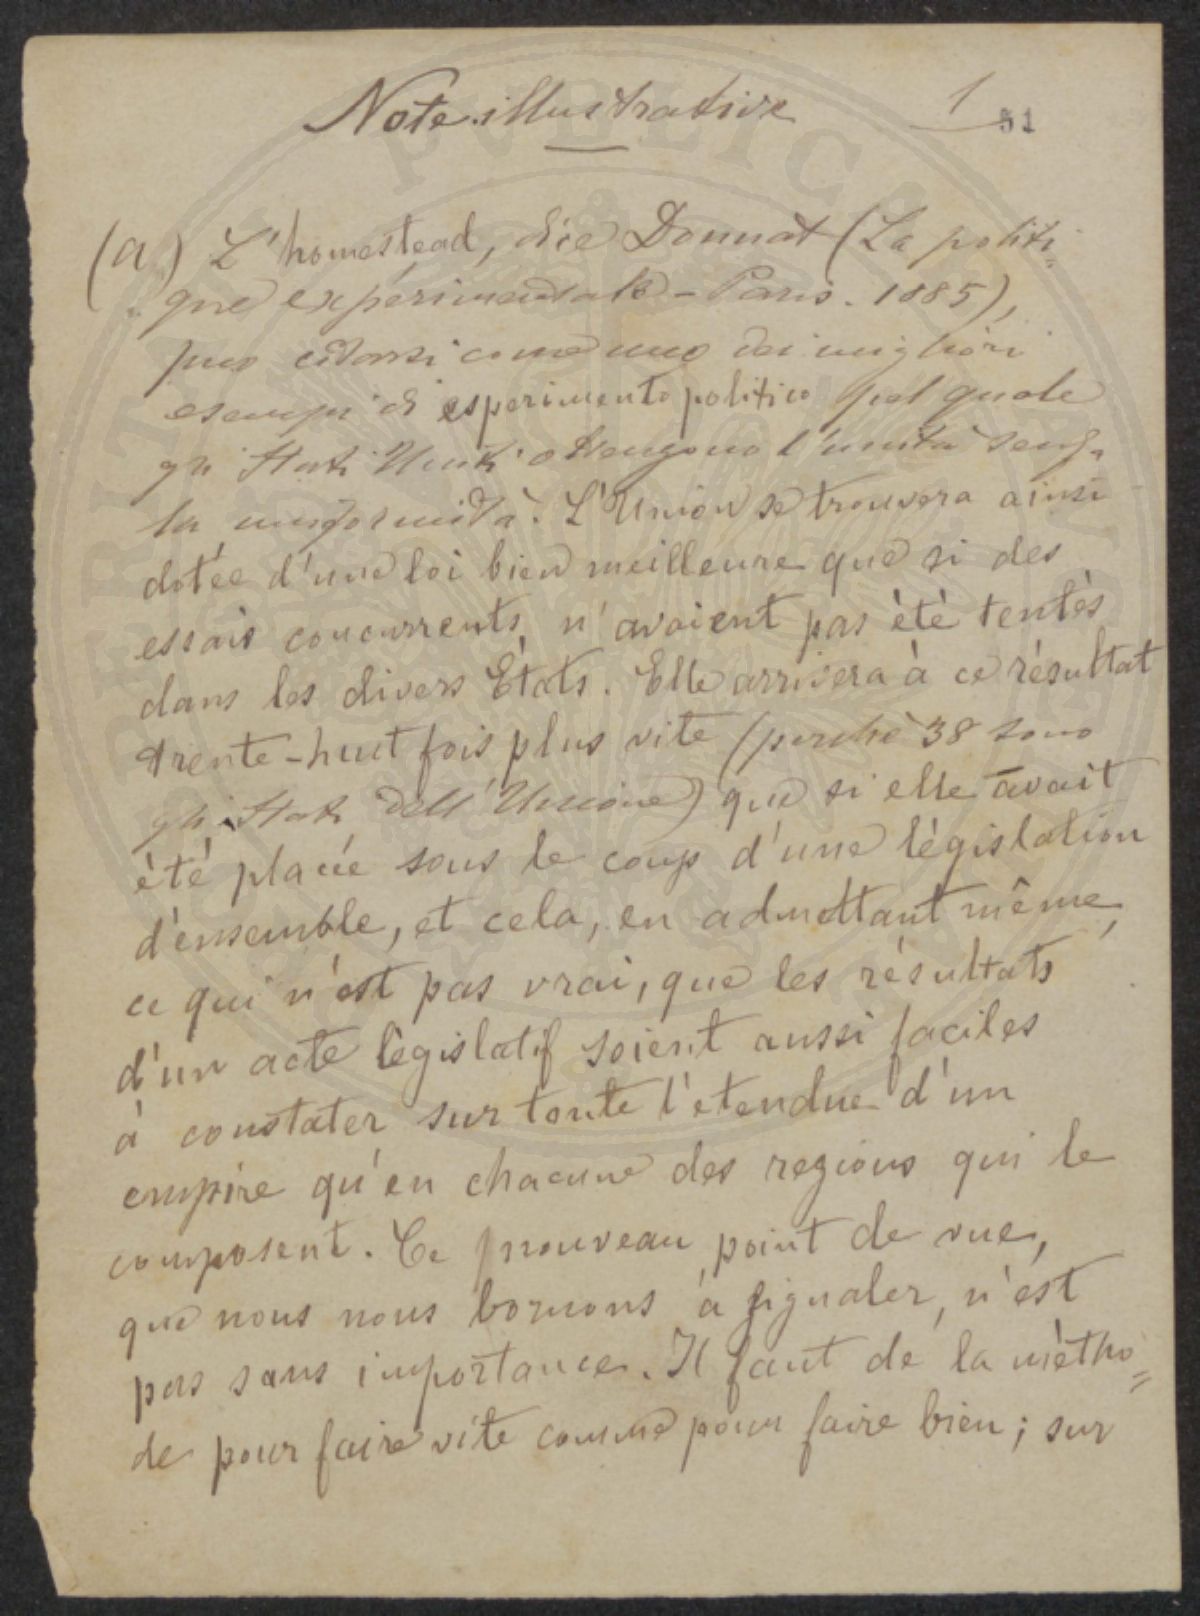 Note illustrative
1
51
(a) L'homestead, dice Donnat (La politi=
que expérimentale - Paris. 1885),
può citarsi come uno dei migliori
esempi di esperimento politico pel quale
gli Stati Uniti ottengono l'unità senza
la uniformità. L'Union se trouvera ainsi
dotée d'une loi bien meilleure que si des
essais concurrents n'avaient pas étè tentès
dans les divers Ètats. Elle arrivera à ce rèsultat
trente-huit fois plus vite (perchè 38 sono
gli Stati dell'Unione) que si elle avait
èté placée sous le coup d'une lègislation
d'ensemble, et cela, en admettant même,
ce qui n'est pas vrai, que les résultats
d'un acte lègislatif soient aussi faciles
à constater sur toute l'etendue d'un
empire qu'en chacune des regions qui le
composent. Ce nouveau point de vue,
que nous nous bornons à signaler, n'est
pas sans importance. Il faut de la mètho=
de pour faire vite comme pour faire bien; sur